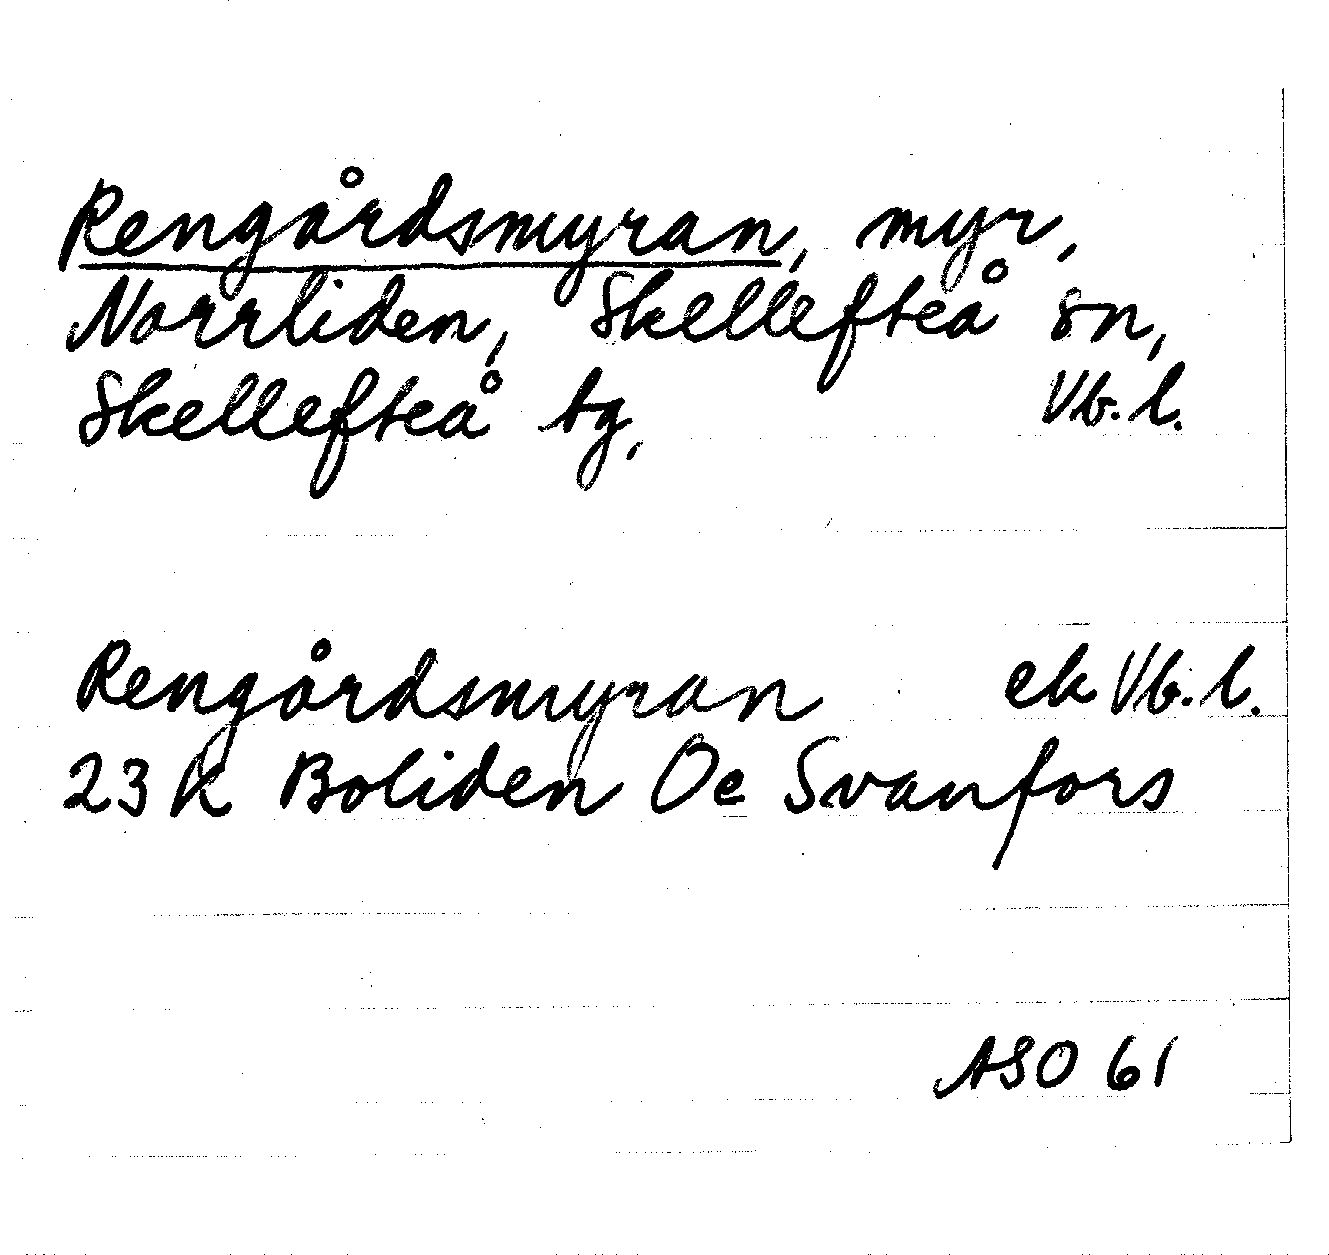 Rengårdsmyran, myr,
Norrliden, Skellefteå sn,
Skellefteå tg, Vb.l.
Rengårdsmyran ek Vb.l.
23 K Boliden Oe Svanfors
ASO 61